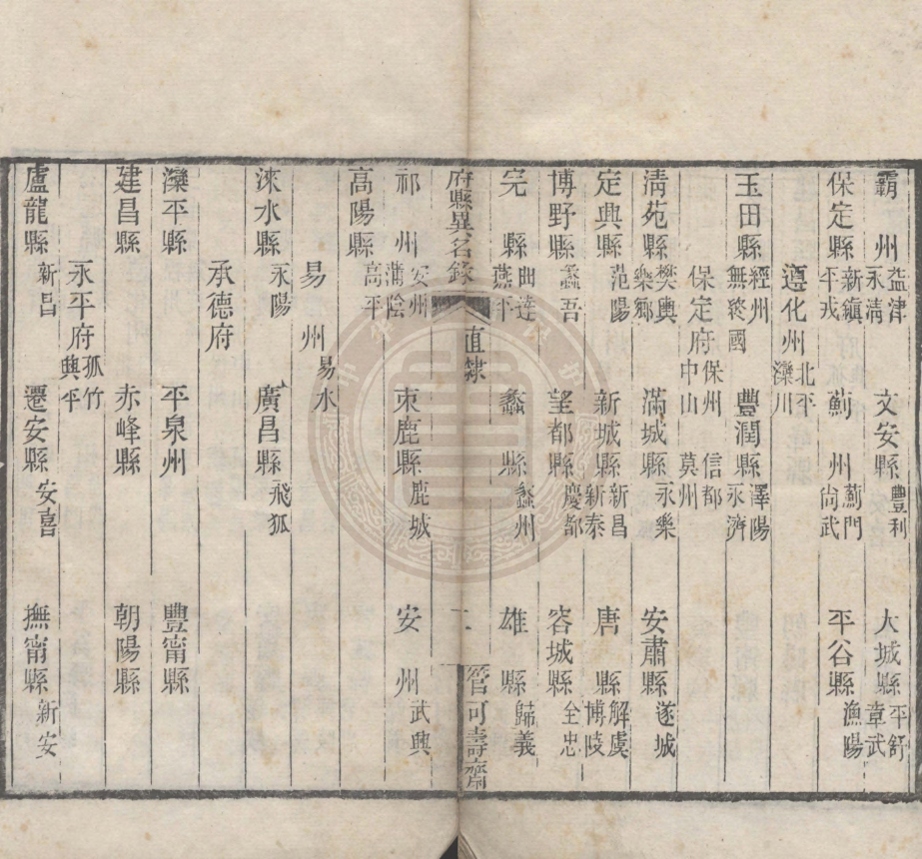 霸州 益津 永清 文安縣 豐利 大城縣 平舒 章武
保定縣 新鎮 平戎 薊州 薊門 尚武 平谷縣 漁陽
遵化州 北平 灤川
玉田縣 經州 無終國 豐潤縣 澤陽 永濟
保定府 保州 中山 信都 莫州
淸苑縣 樊輿 樂鄉 滿城縣 永樂 安肅縣 遂城
定興縣 范陽 新城縣 新昌 新泰 唐縣 解虞 博陵
博野縣 蠡吾 望都縣 慶都 容城縣 全忠
完縣 曲逹 燕平 蠡縣 蠡州 雄縣 歸義
府縣異名錄 直隸 二 管可壽齋
祁州 安州 蒲陰 束鹿縣 鹿城 安州 武興
高陽縣 高平
易州 易水
淶水縣 永陽 廣昌縣 飛狐
承德府
灤平縣 平泉州 豐甯縣
建昌縣 赤峰縣 朝陽縣
永平府 孤竹 興平
盧龍縣 新昌 遷安縣 安喜 撫甯縣 新安